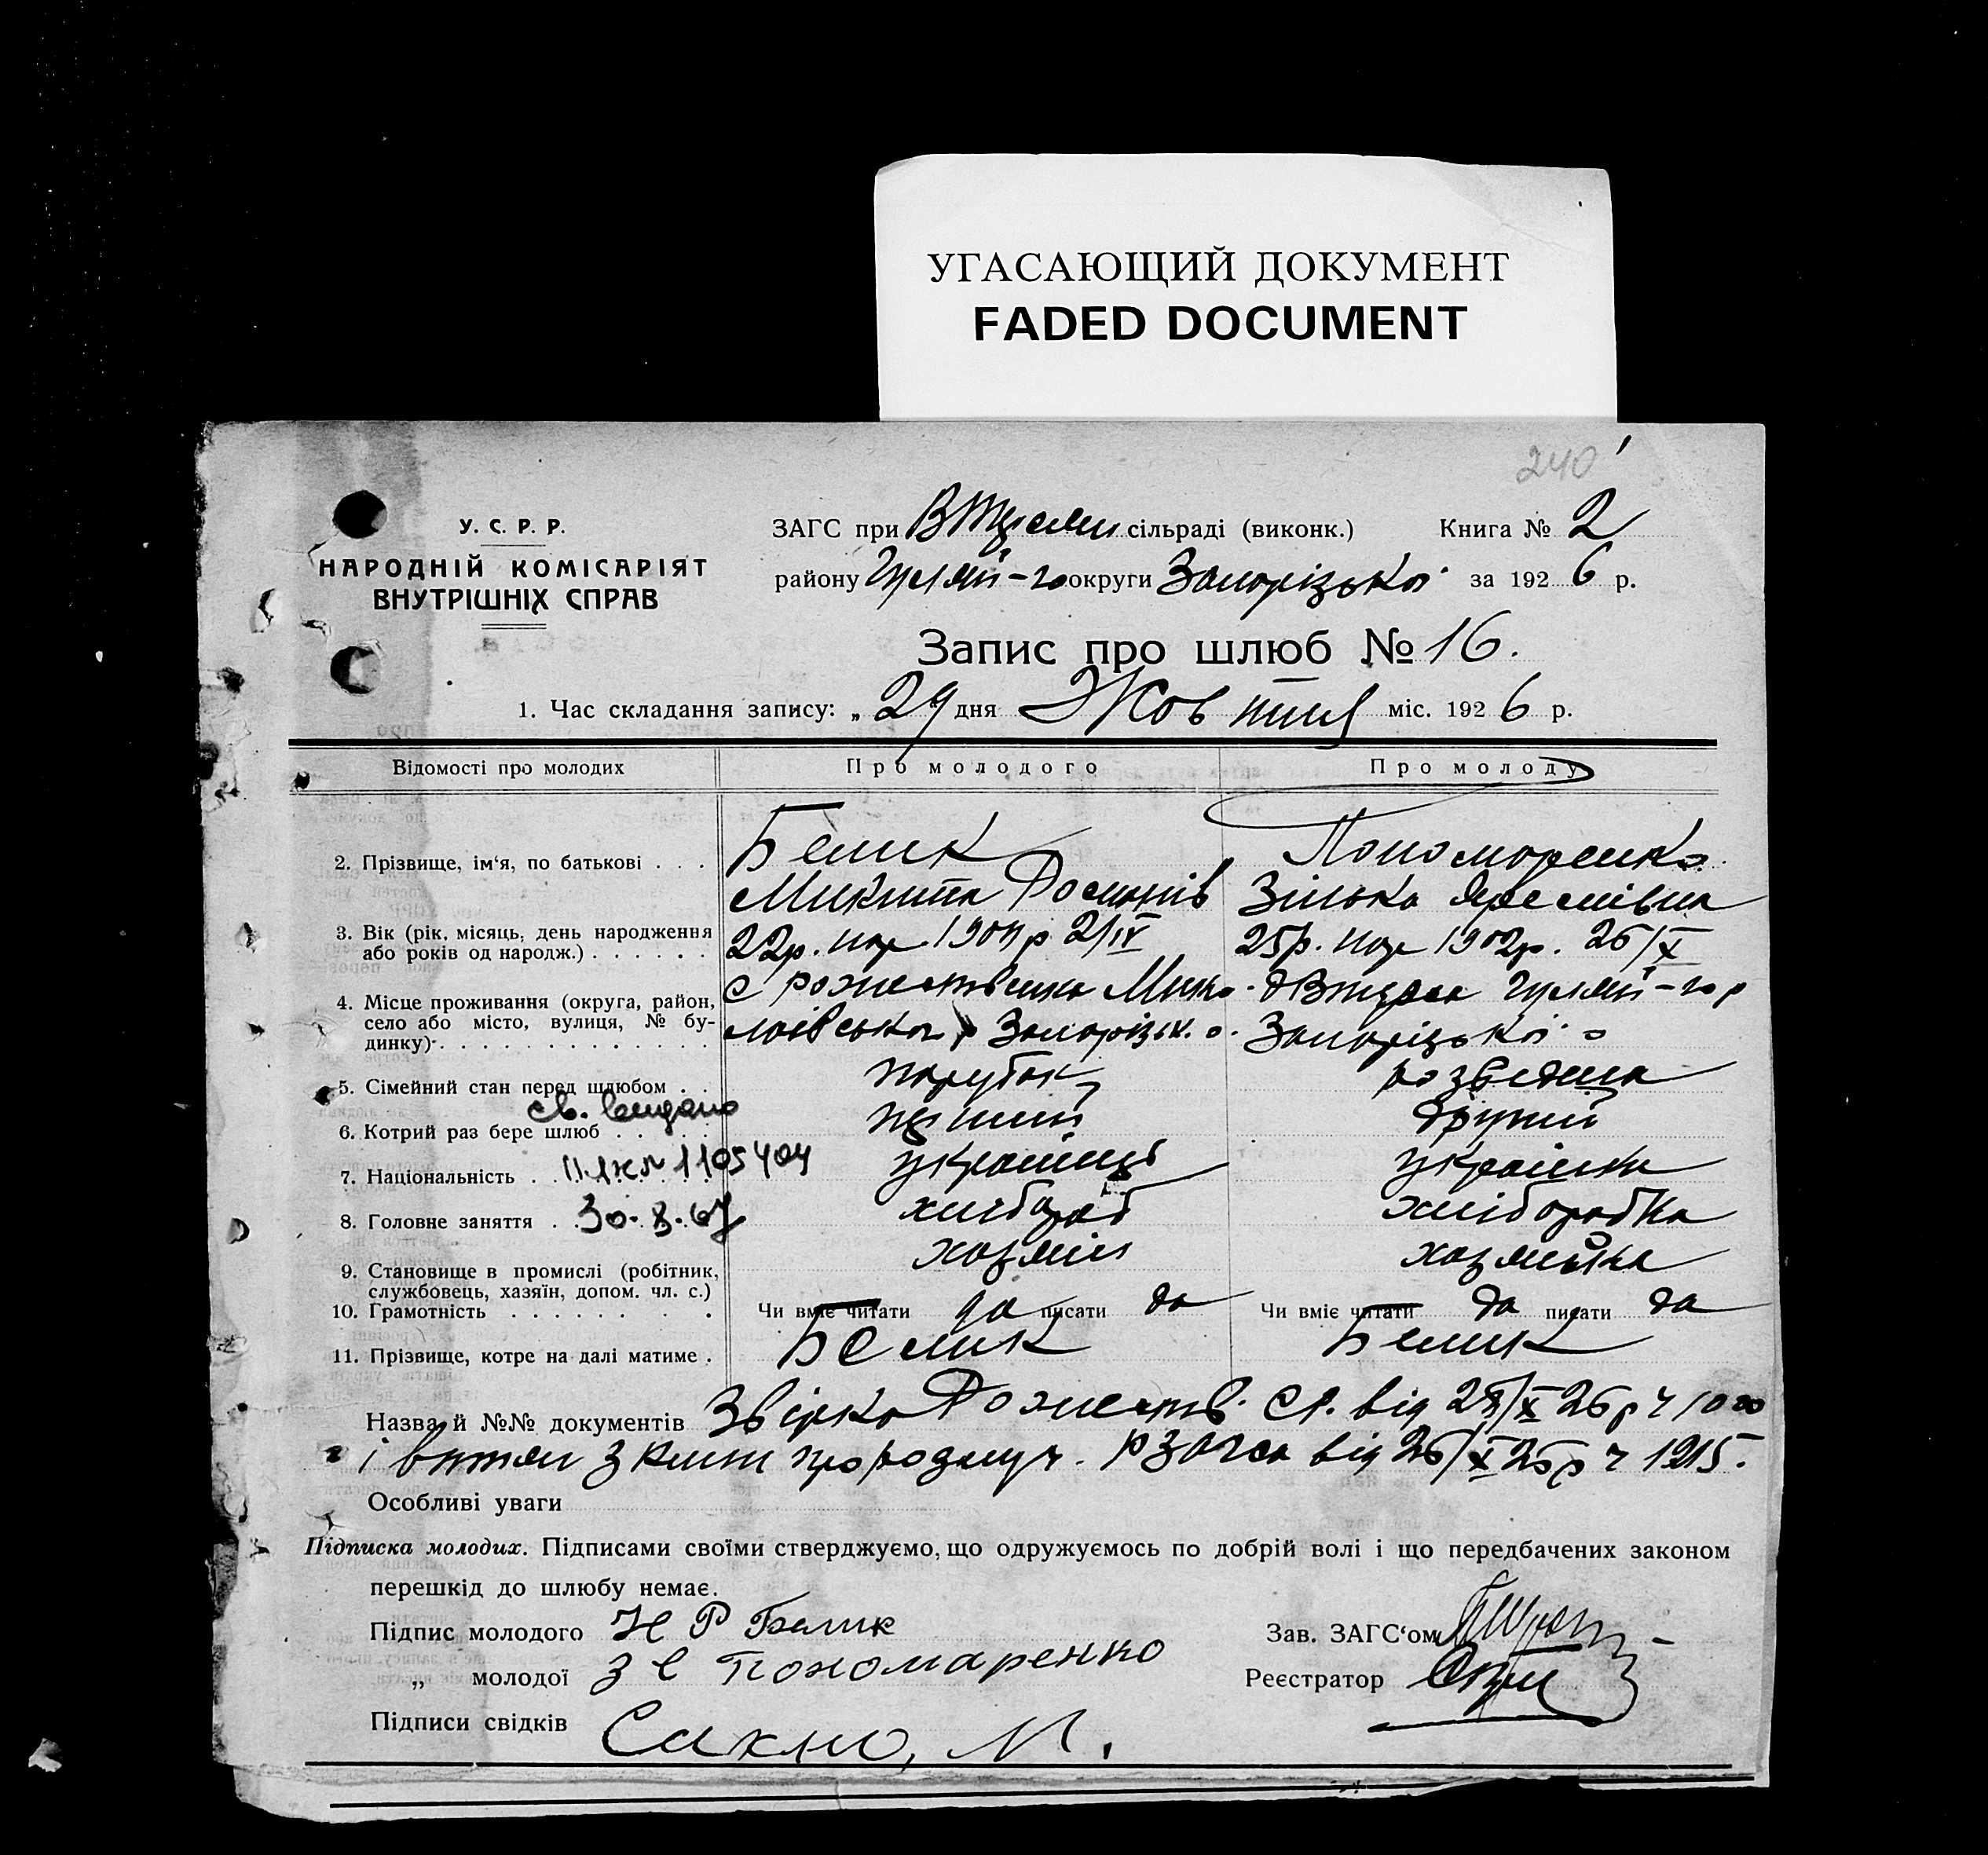 УГАСАЮЩИЙ ДОКУМЕНТ
FADED DOCUMENT
240
У. С. Р. Р.
НАРОДНІЙ КОМІСАРІЯТ
ВНУТРІШНІХ СПРАВ
ЗАГС при сільраді (виконк.) Книга № 2
району Гуляй-го округи Запорізької за 1926 р.
Запис про шлюб № 16.
1. Час складання запису: „29 дня Жовтня міс. 1926 р.
Відомості про молодих Про молодого Про молоду
2. Прізвище, ім‘я, по батькові . . . Белик Пономоренко
Микита Зінька
3. Вік (рік, місяць, день народження 22р. 1904р 2/IV 25р. 1902р. 26/X
або років од народж.) . . . . . .
4. Місце проживання (округа, район, с Мико- Гуляй-
село або місто, вулиця, № бу- лаївська р Запорізьк. о. Запорізької о
динку) . . . . . . . . . . . . .
5. Сімейний стан перед шлюбом . . парубок розведена
св. видано
6. Котрий раз бере шлюб . . . . . перший другий
7. Національність . . . . . . . українець українка
1105404
8. Головне заняття . . 30. 8. 67 хлібороб хліборобка
9. Становище в промислі (робітник, хозяїн хозяйка
службовець, хазяїн, допом. чл. с.)
10. Грамотність . . . . . . . . Чи вміє читати да писати да Чи вміє читати да писати да
11. Прізвище, котре на далі матиме . Белик Белик
Назва й №№ документів Звірка від /X 26р ч 1000
і витяг з книги про розлуч. від 26/X 26р ч 1215.
Особливі уваги
Підписка молодих. Підписами своїми стверджуємо, що одружуємось по добрій волі і що передбачених законом
перешкід до шлюбу немає.
Підпис молодого Н Р Белик Зав. ЗАГС‘ом
„ молодої З Є Пономаренко Реєстратор
Підписи свідків